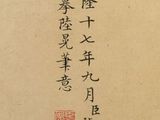 隆十七年九月臣
摹陸晃筆意